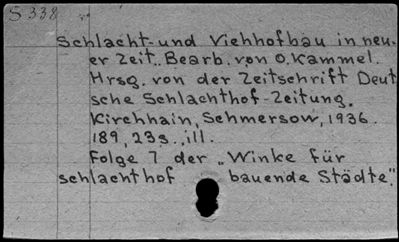 S 338
Schlacht- und Viehhofbau in neu-
er Zeit.. Bearb. von O. Kammel.
Hrsg. von der Zeitschrift Deut
sche Schlachthof-Zeitung.
Kirchhain, Schmersow, 1936.
189, 23 s., ill.
Folge 7 der „Winke für
schlachthof bauende Städte".